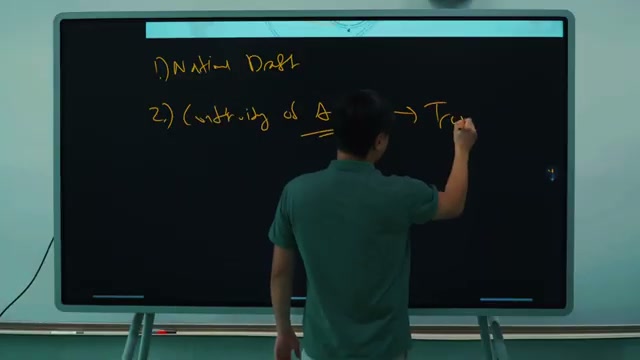 1.) Nation Draft
2.) Continuity of A → Tru